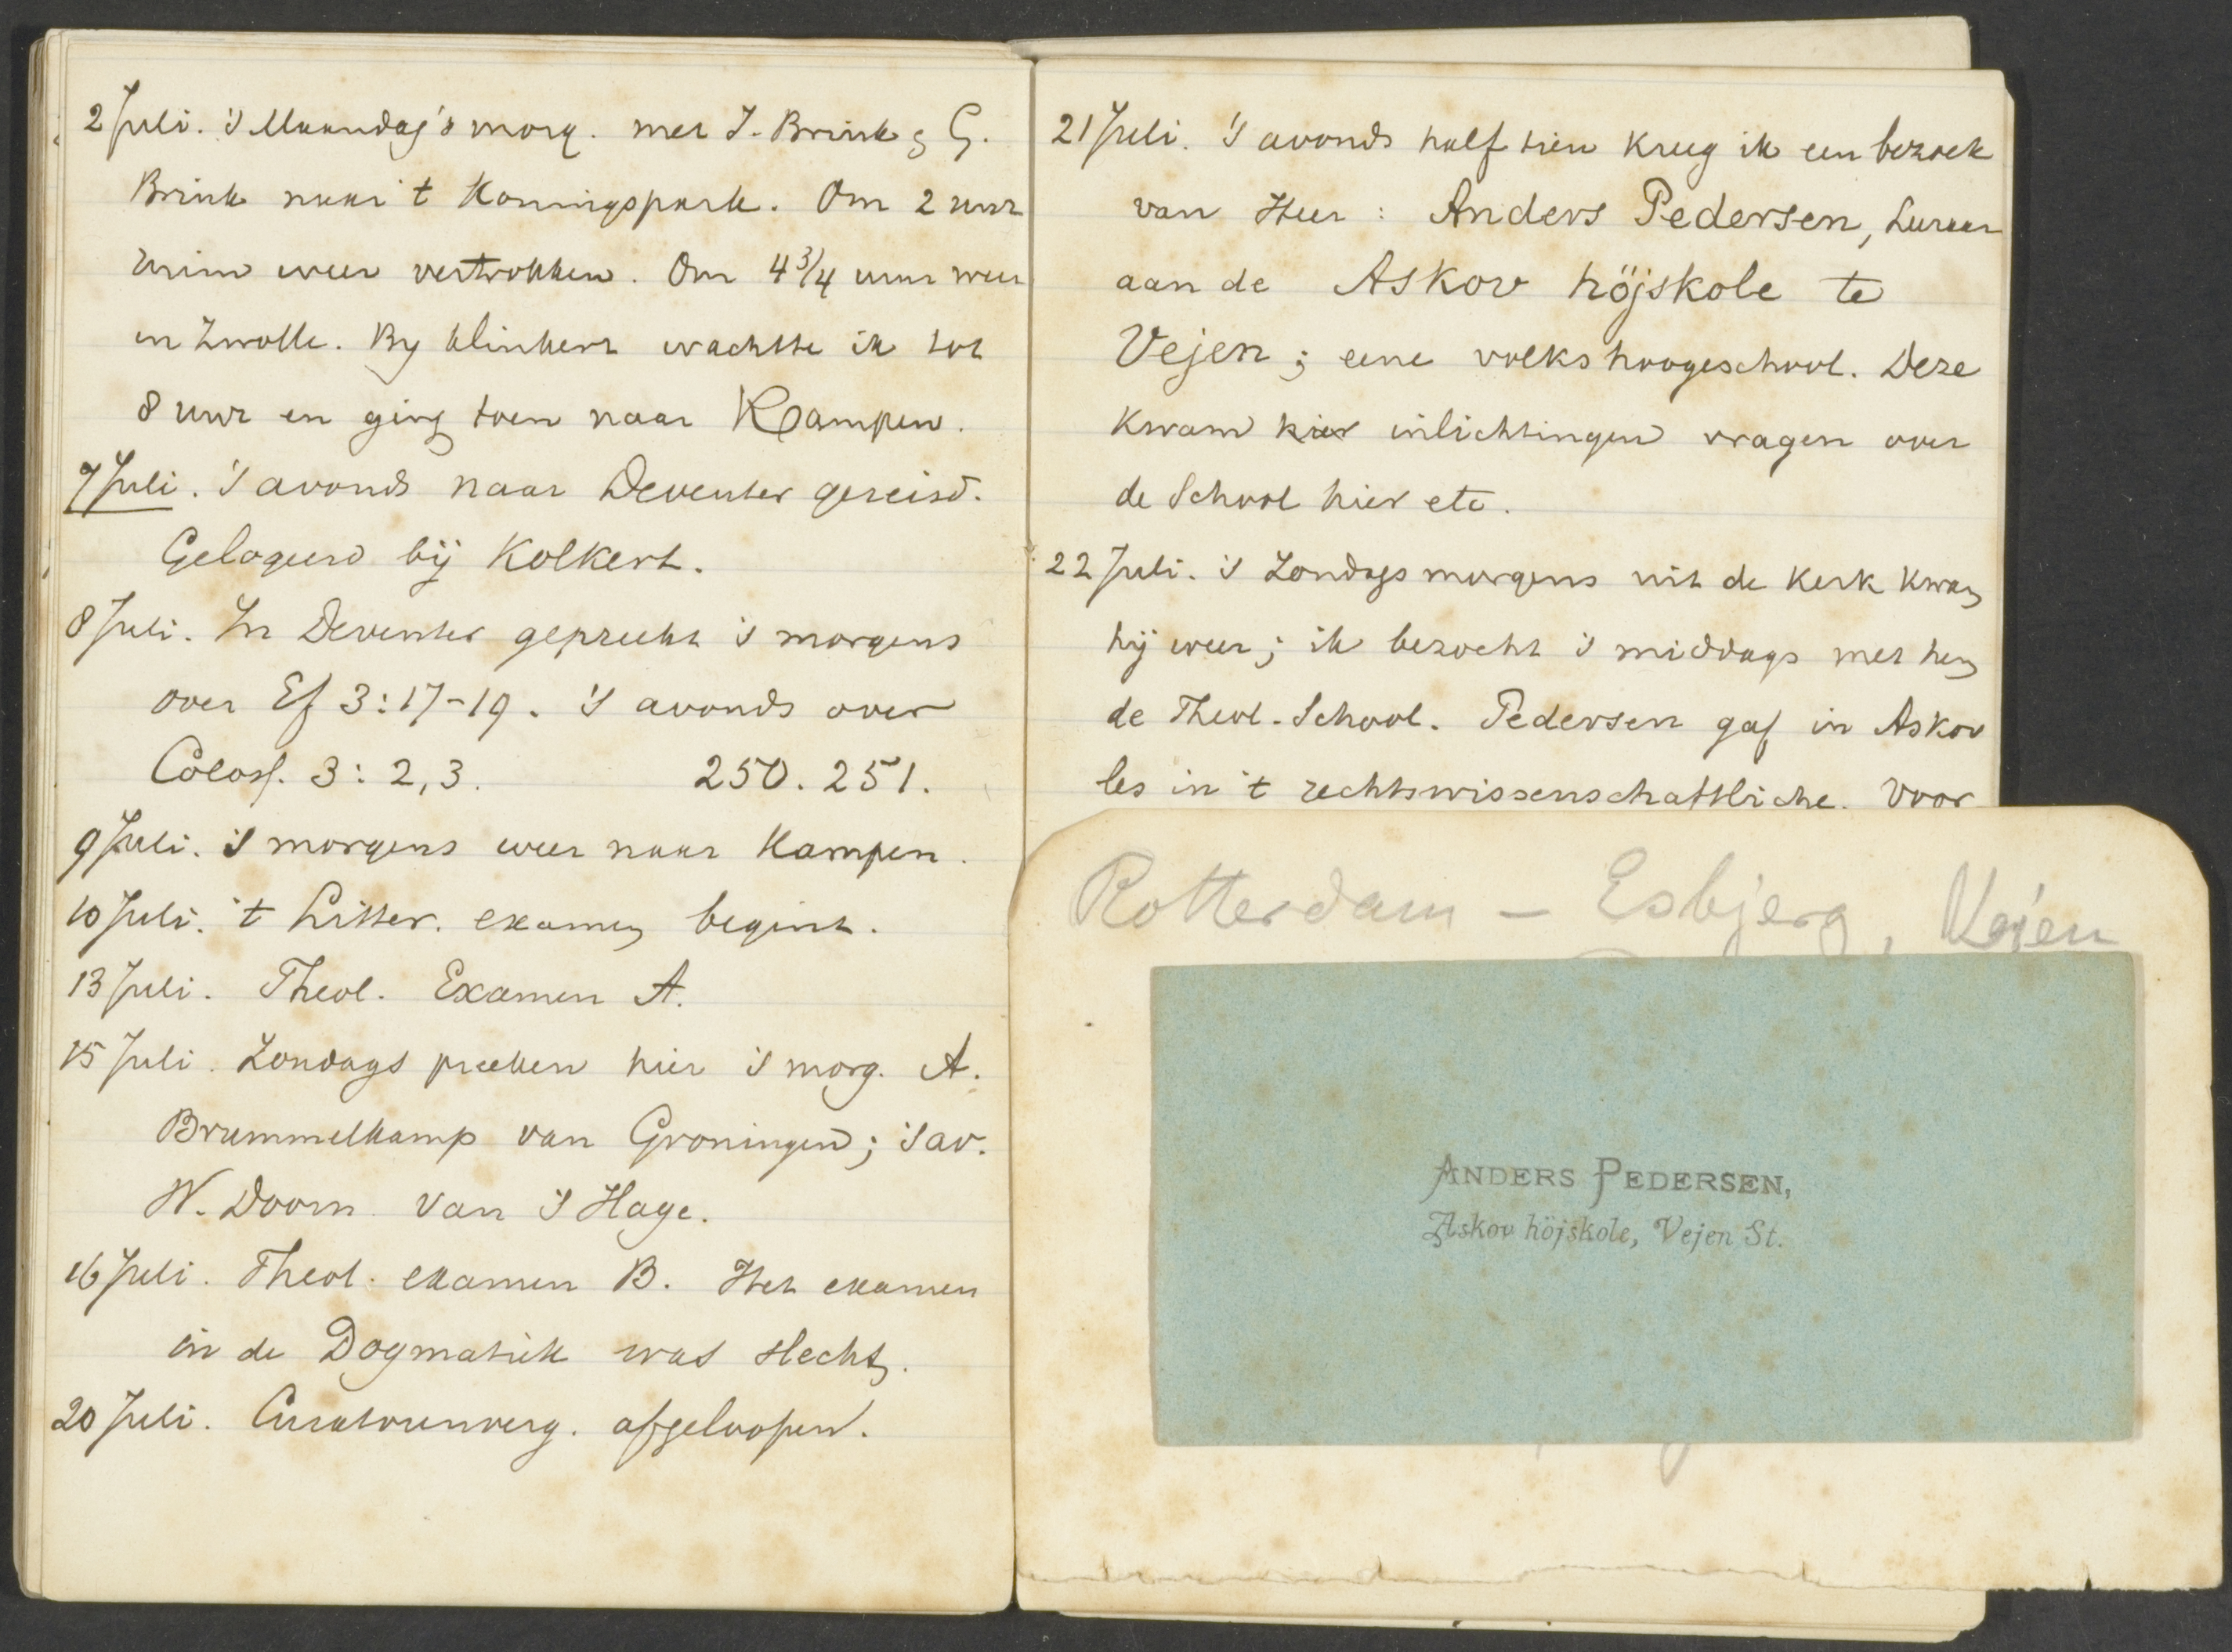 2 Juli. 's Maandag's morg. met J. Brink & G.
Brink naar 't Koningspark. Om 2 uur
weer vertrokken. Om 4 3/4 uur weer
in Zwolle. By Klinkert wachtte ik tot
8 uur en ging toen naar Kampen.
7 Juli. 's avonds naar Deventer gereisd.
Gelogeerd bij Kolkert.
8 Juli. In Deventer gepreekt 's morgens
over Ef 3:17-19. 's avonds over
Coloss. 3:2,3. 250. 251.
9 Juli. 's morgens weer naar Kampen.
10 Juli. 't Litter. examen begint.
13 Juli. Theol. Examen A.
15 Juli. Zondags preeken hier 's morg. A.
Brummelkamp van Groningen; 's av.
W. Doorn van 's Hage.
16 Juli. Theol. examen B. Het examen
in de Dogmatiek was slecht.
20 Juli. Curatorenverg. afgeloopen.
21 Juli. 's avonds half tien kreeg ik een bezoek
van Heer: Anders Pedersen, Leeraar
aan de Askov höjskole te
Vejen; eene volkshoogeschool. Deze
kwam hier inlichtingen vragen over
de School hier etc.
22 Juli. 's Zondags morgens uit de kerk kwam
hij weer; ik bezocht 's middags met hem
de Theol. School. Pedersen gaf in Askov
les in 't rechtswissenschaftliche. Voor
Rotterdam — Esbjerg, Vejen
ANDERS PEDERSEN,
Askov höjskole, Vejen St.